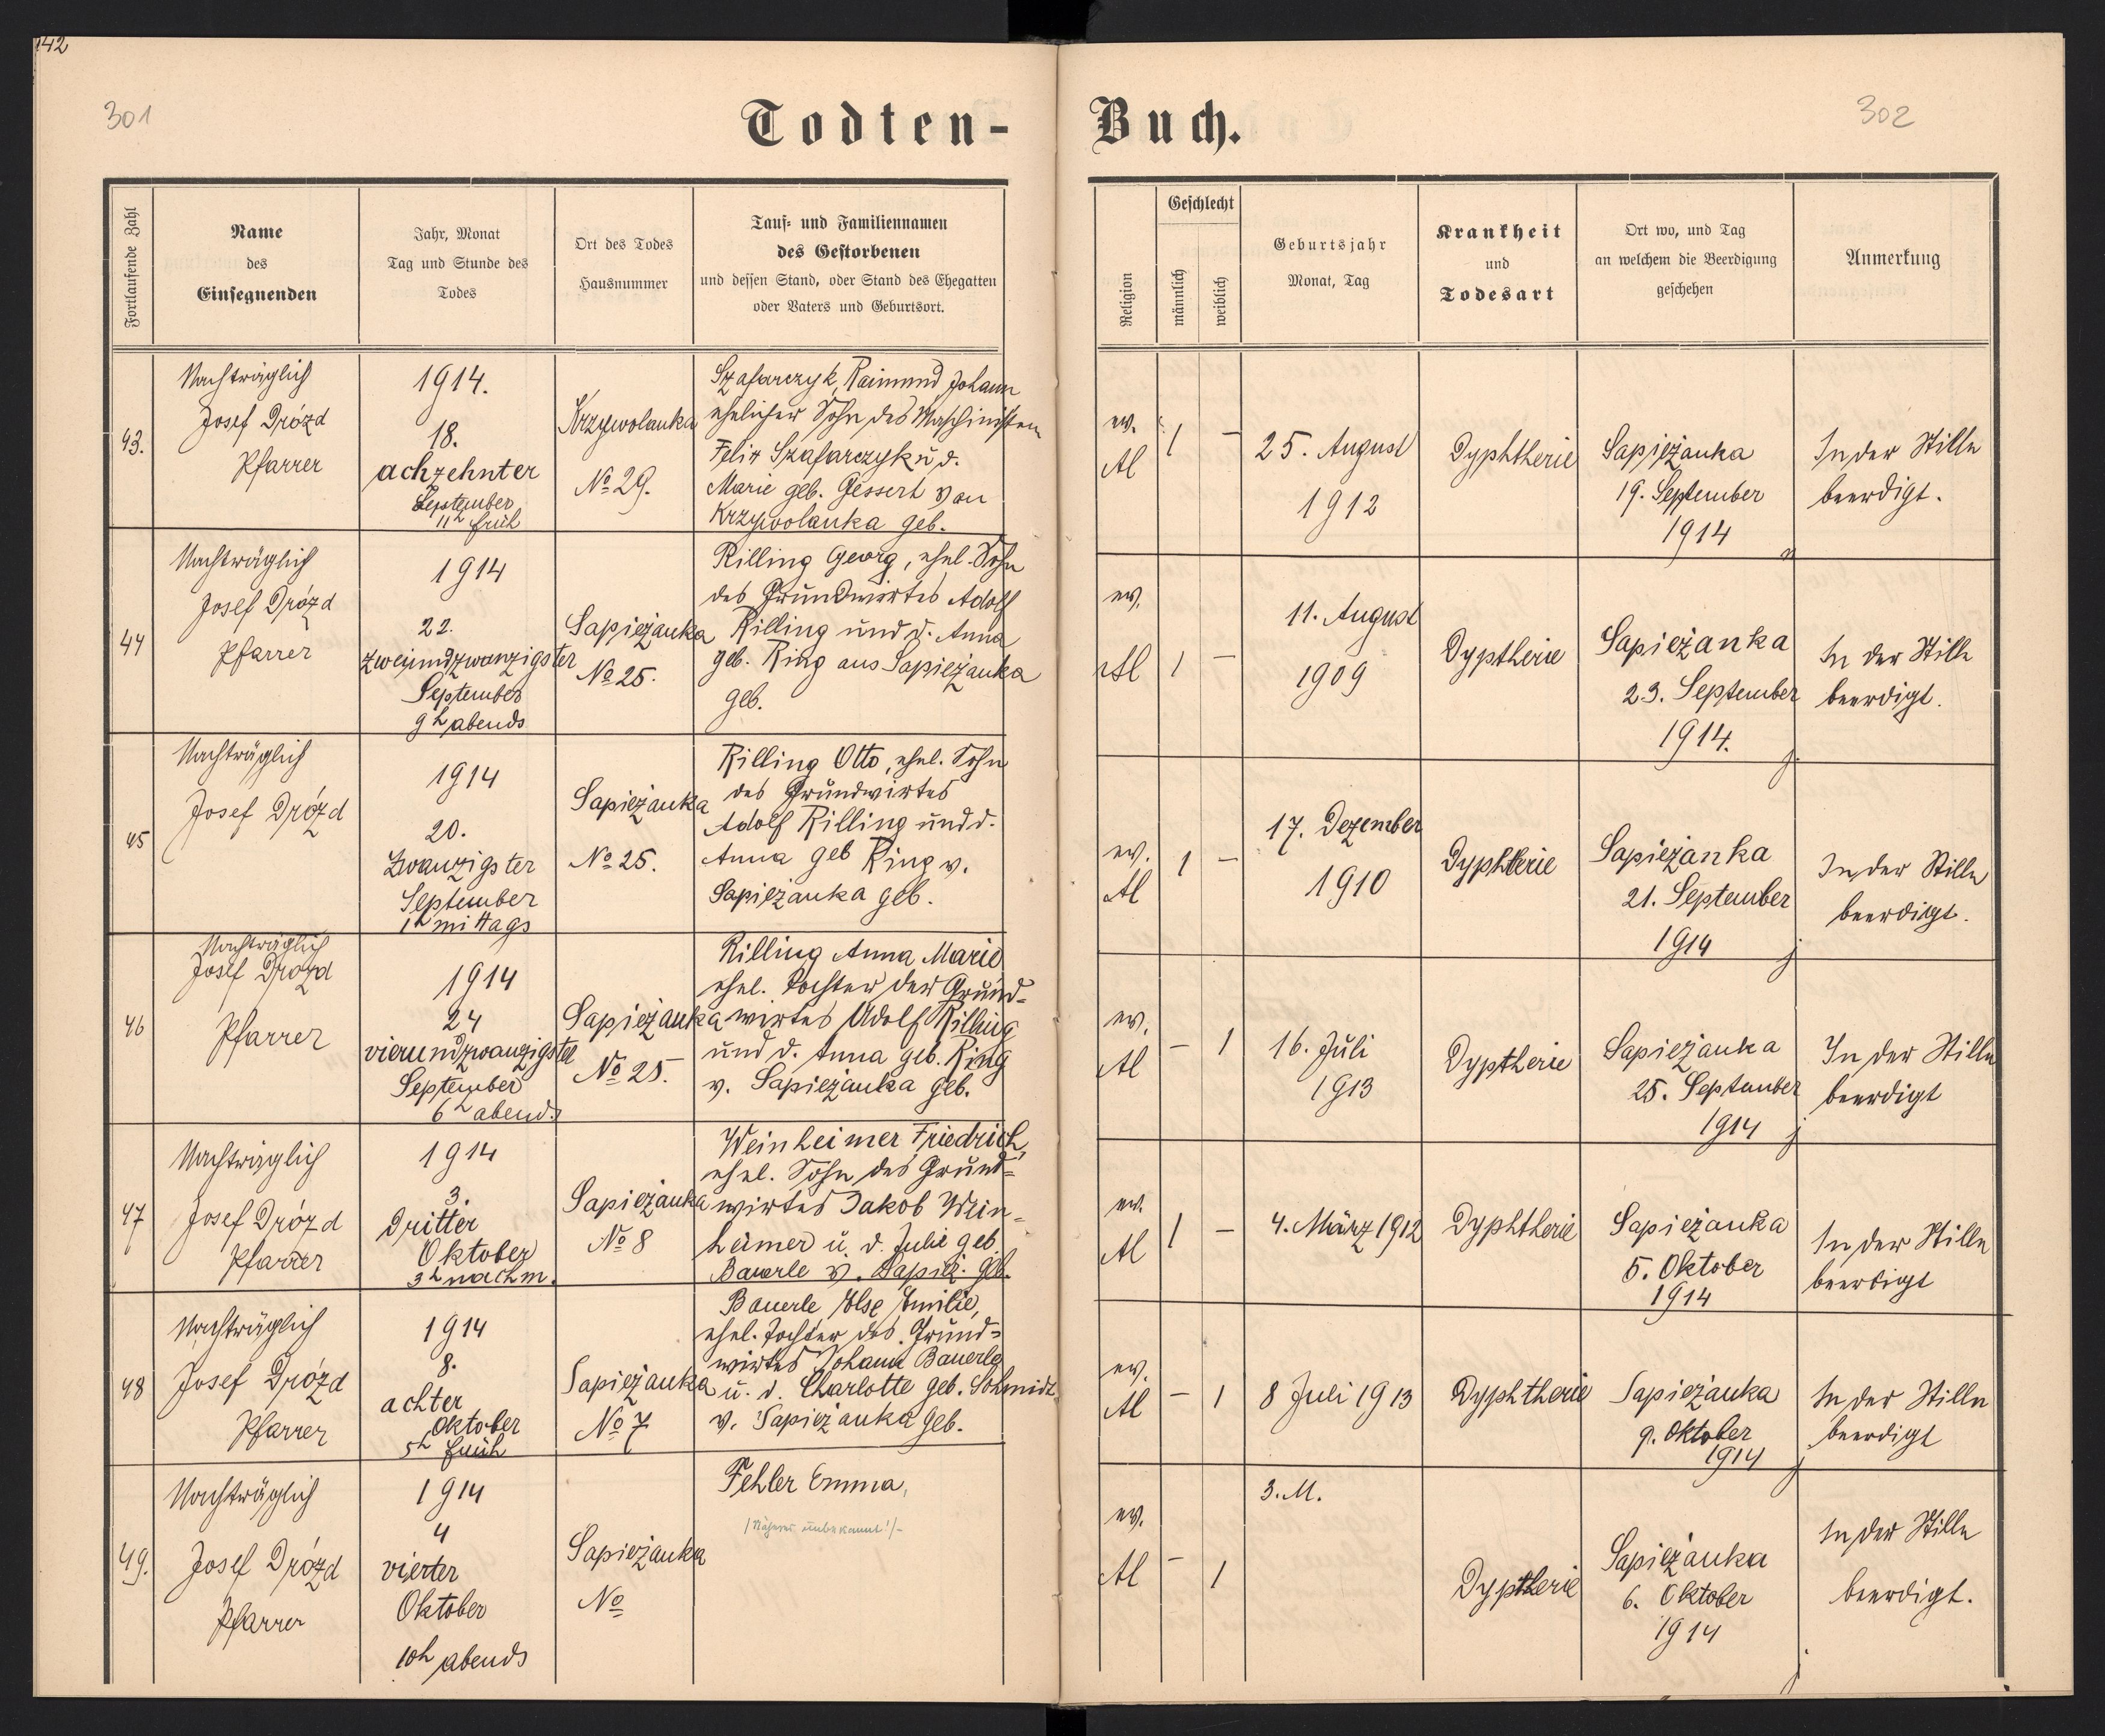 142
301
Todten-
Fortlaufende Zahl
Name
des
Einsegnenden
Jahr, Monat
Tag und Stunde des
Todes
Ort des Todes
Hausnummer
Tauf- und Familiennamen
des Gestorbenen
und dessen Stand, oder Stand des Ehegatten
oder Vaters und Geburtsort.
43.
Nachträglich
Josef Drózd
Pfarrer
1914.
18.
achzehnter
September
11h früh
Krzywolanka
No 29.
Szafarczyk, Raimund Johann
ehelicher Sohn des Maschinisten
Felix Szafarczyk u d.
Marie geb. Gessert von
Krzywolanka geb.
44
Nachträglich
Josef Drózd
Pfarrer
1914
22.
zweiundzwanzigster
September
9h abends
Sapieżanka
No 25.
Rilling Georg, ehel. Sohn
des Grundwirtes Adolf
Rilling und d. Anna
geb. Ring aus Sapieżanka
geb.
45
Nachträglich
Josef Drózd
1914
20.
Zwanzigster
September
1h mittags
Sapieżanka
No 25.
Rilling Otto, ehel. Sohn
des Grundwirtes
Adolf Rilling und d.
Anna geb Ring v.
Sapieżanka geb.
46
Nachträglich
Josef Drózd
Pfarrer
1914
24
vierundzwanzigster
September
6h abends
Sapieżanka
No 25.
Rilling Anna Marie
ehel. Tochter der Grund-
wirtes Adolf Rilling
und d. Anna geb. Ring
v. Sapieżanka geb.
47
Nachträglich
Josef Drózd
Pfarrer
1914
3.
Dritter
Oktober
3h nachm.
Sapieżanka
No 8
Weinheimer Friedrich,
ehel. Sohn des Grund-
wirtes Jakob Wein-
heimer u. d. Julie geb.
Bauerle v. Sapież. geb.
48
Nachträglich
Josef Drózd
Pfarrer
1914
8.
achter
Oktober
5h früh
Sapieżanka
No 7
Bauerle Else Emilie,
ehel. Tochter des Grund-
wirtes Johann Bauerle
u. d. Charlotte geb. Schmidt
v. Sapieżanka geb.
49.
Nachträglich
Josef Drózd
Pfarrer
1914
4
vierter
Oktober
10h abends
Sapieżanka
No
Fehler Emma,
/Näheres unbekannt!/-
302
Buch.
Religion
Geschlecht
männlich
weiblich
Geburtsjahr
Monat, Tag
Krankheit
und
Todesart
Ort wo, und Tag
an welchem die Beerdigung
geschehen
Anmerkung
ev.
Al
1
–
25. August
1912
Dyphtherie
Sapieżanka
19. September
1914
In der Stille
beerdigt.
ev.
Al
1
–
11. August
1909
Dyptherie
Sapieżanka
23. September
1914.
In der Stille
beerdigt.
ev.
Al
1
–
17. Dezember
1910
Dyphterie
Sapieżanka
21. September
1914
In der Stille
beerdigt.
ev.
Al
–
1
16. Juli
1913
Dyptherie
Sapieżanka
25. September
1914
In der Stille
beerdigt
ev.
Al
1
–
4. März 1912
Dyphtherie
Sapieżanka
5. Oktober
1914
In der Stille
beerdigt
ev.
Al
–
1
8 Juli 1913
Dyphtherie
Sapieżanka
9. Oktober
1914
In der Stille
beerdigt
ev.
Al
–
1
3. M.
Dyptherie
Sapieżanka
6. Oktober
1914
In der Stille
beerdigt.